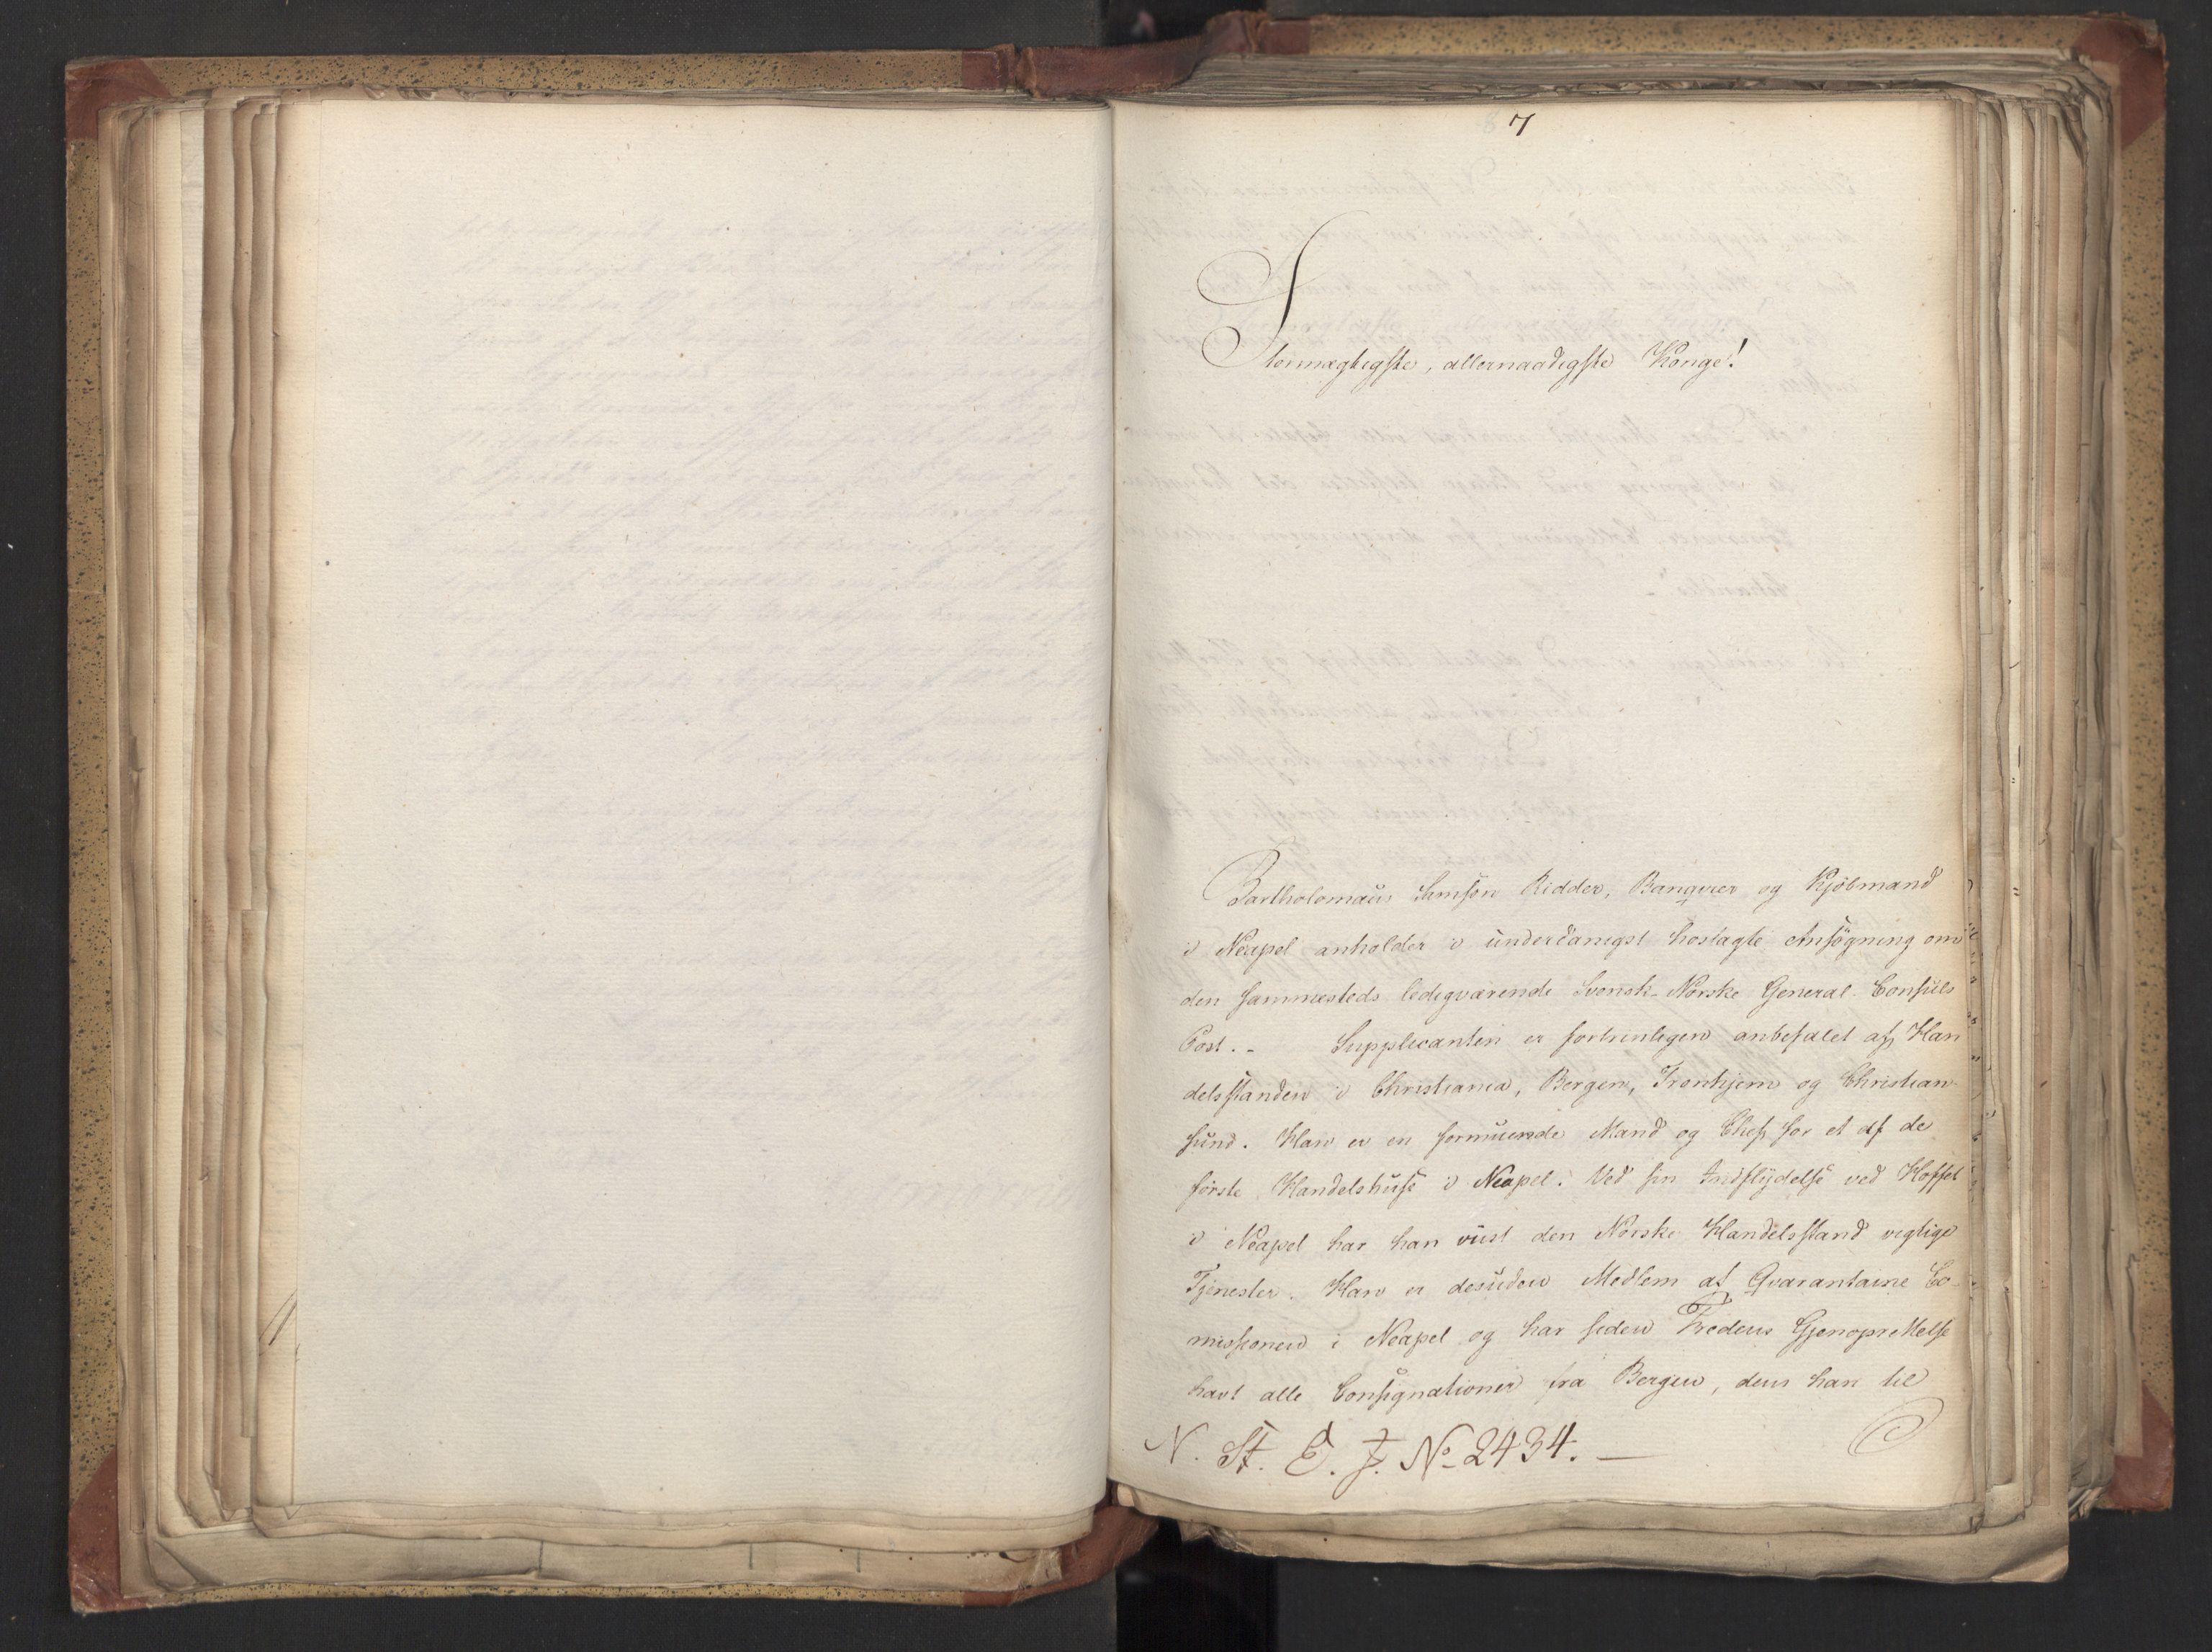 7
Stormægtigste, allernaadigste Konge!
Bartholomæus Samson Ridder, Banqvier og Kjöbmand
i Neapel anholder i underdanigst hoslagte Ansögning om
den sammesteds ledigværende Svensk-Norske General-Consuls
Post. - Supplicanten er fortrinligen anbefalet af Han
delsstanden i Christiania, Bergen, Tronhjem og Christian-
sund. Han er en formuende Mand og Chef for et af de
förste Handelshuse i Neapel. Ved sin Indflÿdelse ved Hoffet
i Neapel har han viist den Norske Handelsstand vigtige
Tjenester. Han er desuden Medlem af Qvarantaine Co-
missionen i Neapel og har siden Fredens Gjenoprettelse
havt alle Consignationer fra Bergen, dem han til
N. St. E. J. No 2434. —